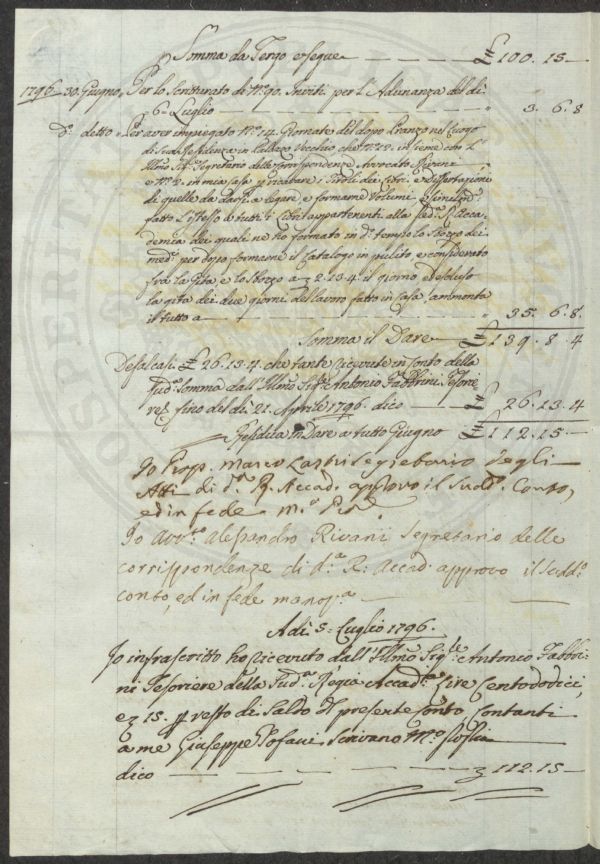 Somma da Tergo e segue — £ 100. 15 —
1796 - 30. Giugno, Per lo Scritturato di N.º 90. Inviti per l'Adunanza del dì
6 = Luglio — " 3. 6. 8
d.º detto - Per aver impiegato N.º 14. Giornate del dopo Pranzo nel Luogo
di Sua Residenza in Palazzo Vecchio che N.º 12. insieme con l'
Illmo Sig.re Segretario delle Corrispondenze Avvocato Rivani
e N.º 2. in mia Casa p ricavare i Titoli dei Libri, e Dissertazioni
di quelle da darsi a legare e formarne Volumi, e similm.e
fatto l'istesso di tutti i Libri appartenenti alla Sud.a R. Acca-
demia dei quali ne ho formato in d.º tempo lo Sbozzo dei
med.i per dopo formarne il Catalogo in pulito e considerato
fra la Gita, e lo Sbozzo a 2. 13. 4. il giorno escluso
la gita dei due giorni del lavoro fatto in Casa, ammonta
il tutto a — " 35. 6. 8.
Somma il Dare — £ 139. 8. 4
Defalcasi £ 26. 13. 4. che tante ricevute in conto della
Sud.a Somma dall'Illmo Sig.re Antonio Fabbrini Tesorie-
re fino del dì 21. Aprile 1796. dico — £ 26. 13. 4
Resta in Dare a tutto Giugno £ 112. 15 —
Io Prop. Marco Lastri Segretario degli
Atti di d.a R. Accad. approvo il Sudd.º Conto,
ed in fede m.º p.a
Io Avv.º Alessandro Rivani Segretario delle
corrispondenze di d.a R. Accad. approvo il Sudd.º
conto, ed in fede mano p.a
A dì 5 = Luglio 1796.
Io infrascritto ho ricevuto dall'Illmo Sig.re Antonio Fabbri-
ni Tesoriere della Sud.a Regia Accad.a Lire Centododici,
e 15. p resto di Saldo del presente Conto, Contanti
a me Giuseppe Scrivano M.º
dico — 112. 15 —